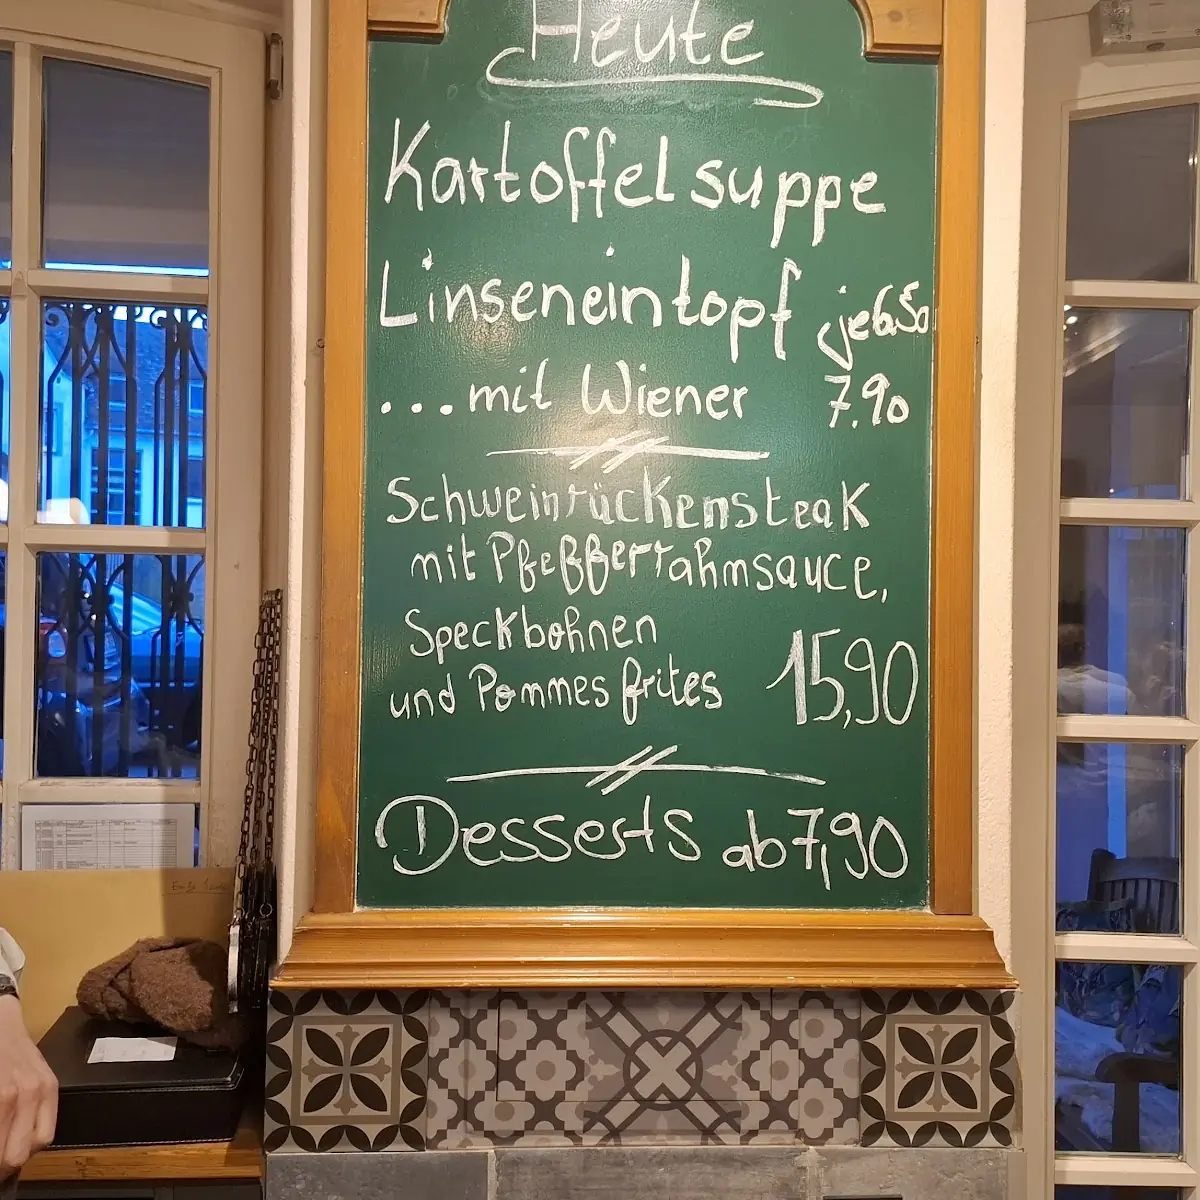 Heute
Kartoffelsuppe
Linseneintopf je 6.50
...mit Wiener 7.90
Schweinrückensteak
mit Pfefferrahmsauce,
Speckbohnen
und Pommes frites 15,90
Desserts ab 7,90